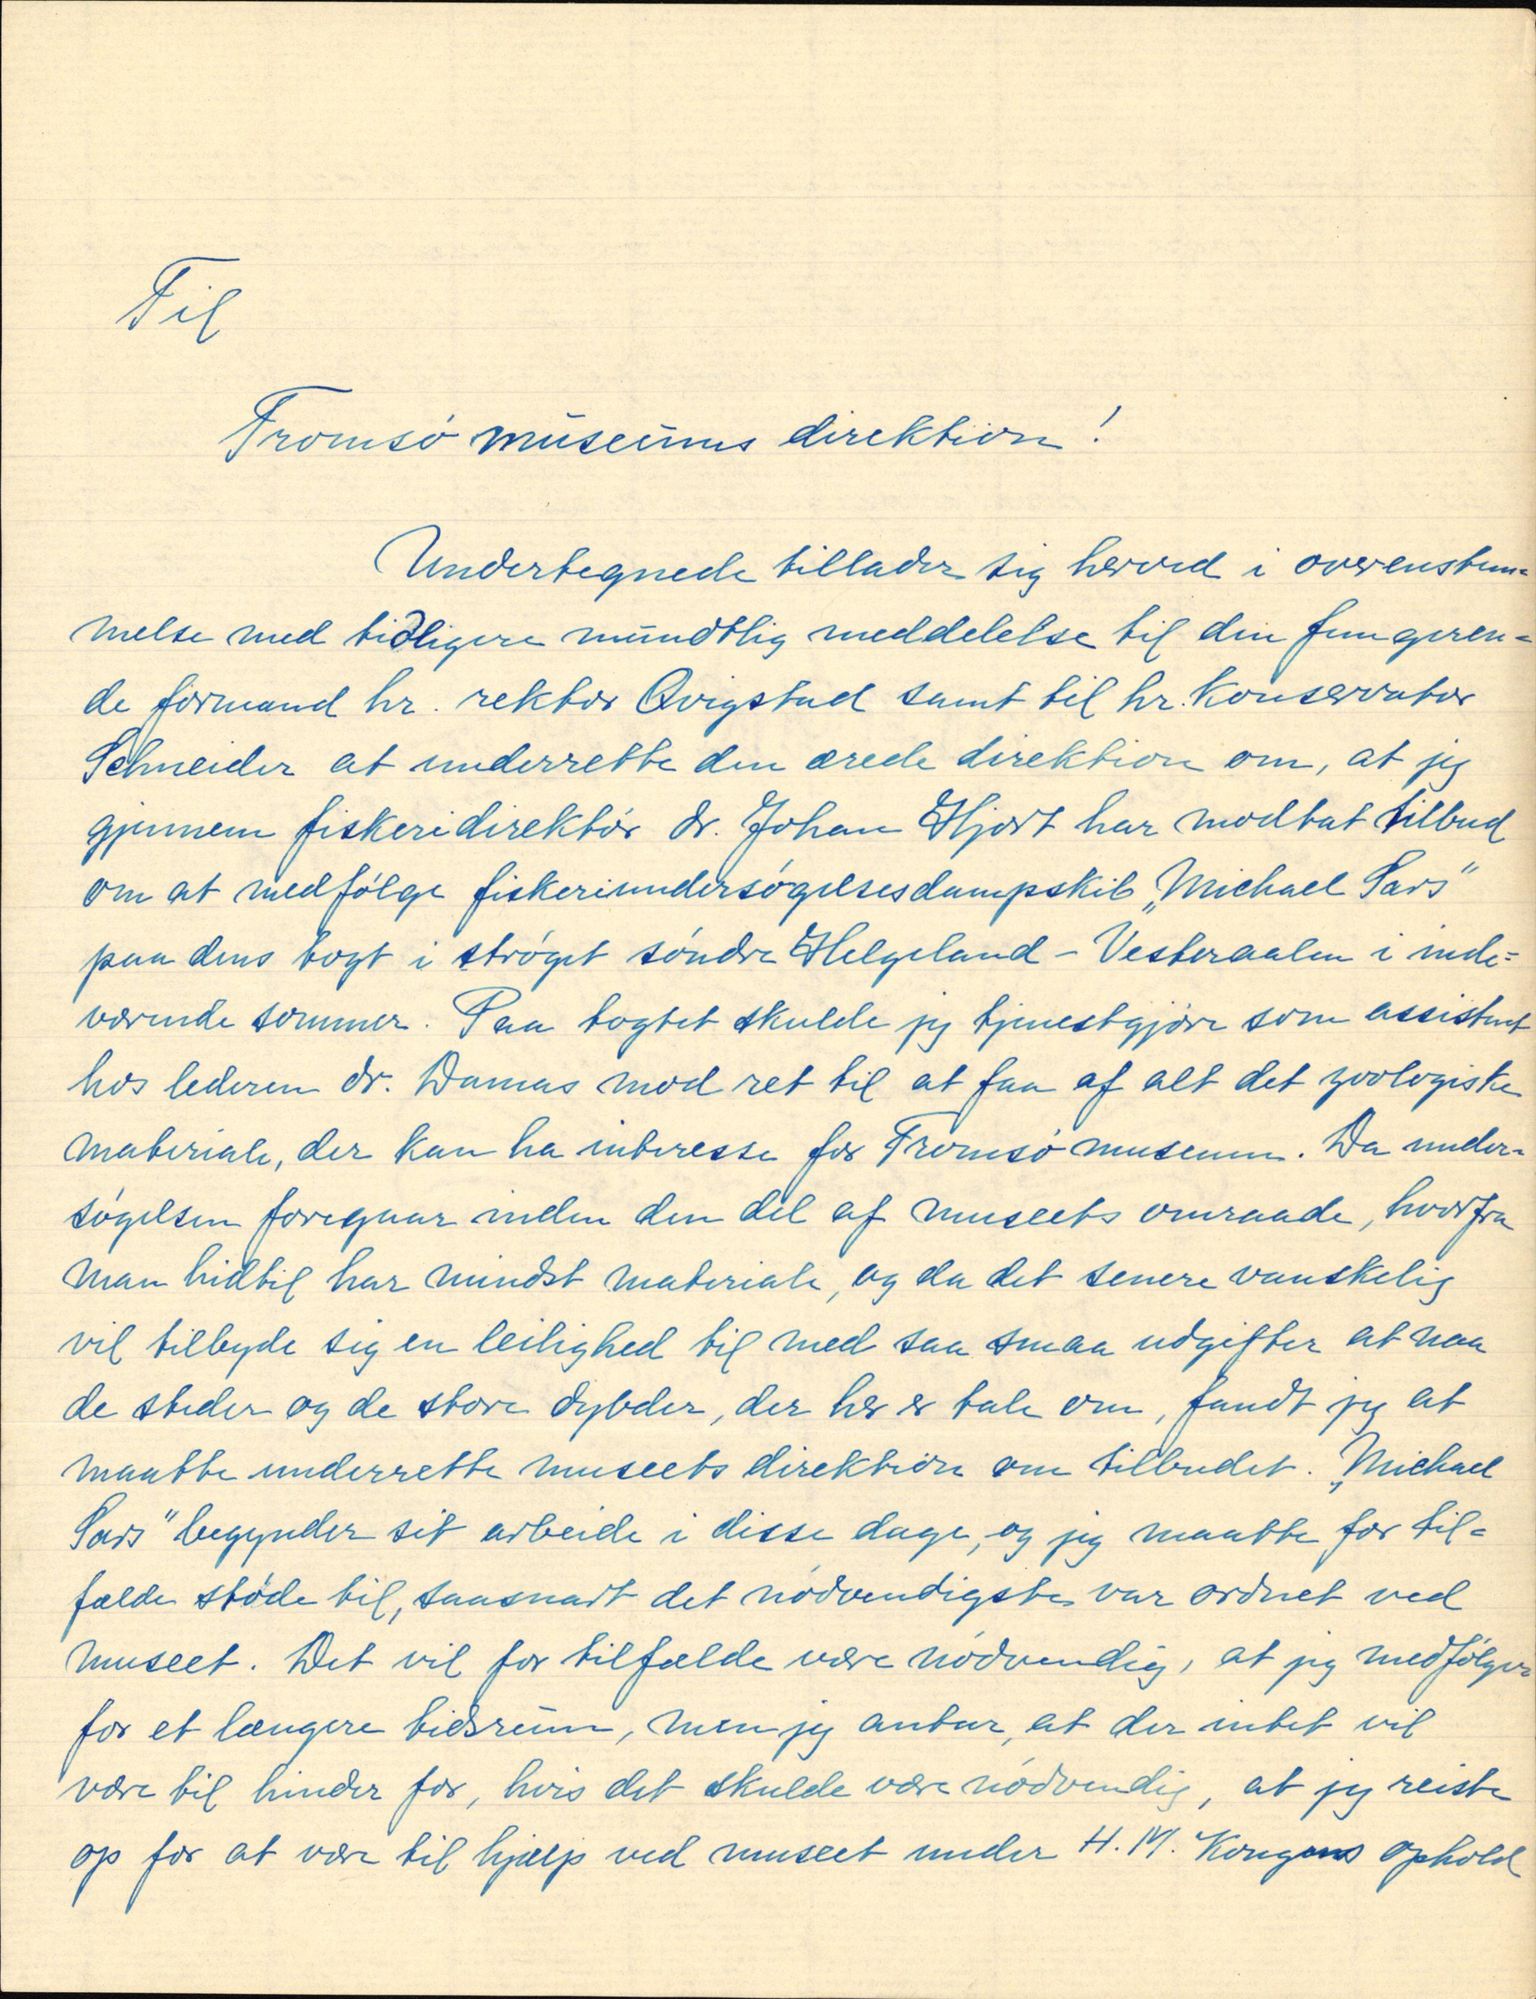 Til
Tromsø museums direktion!
Undertegnede tillader sig herved i overenstem=
melse med tidligere mundtlig meddelelse til din fungeren=
de formand hr. rektor Qvigstad samt til hr. konservator
Schneider at underrette den ærede direktion om, at jeg
gjennem fiskeridirektør dr. Johan Hjort har modtat tilbud
om at medfølge fiskeriundersøgelsesdampskib „Michael Sars“
paa dens togt i strøget søndre Helgeland - Vesteraalen i inde=
værende sommer. Paa togtet skulde jeg tjenestgjøre som assistent
hos lederen dr. Damas mod ret til at faa af alt det zoologiske
materiale, der kan ha interesse for Tromsø museum. Da under=
søgelsen foregaar inden den del af museets omraade, hvorfra
man hidtil har mindst materiale, og da det senere vanskelig
vil tilbyde sig en leilighed til med saa smaa udgifter at naa
de steder og de store dybder, der her er tale om, fandt jeg at
maatte underrette museets direktion om tilbudet. „Michael
Sars“ begynder sit arbeide i disse dage, og jeg maatte for til=
fælde støde til, saasnart det nødvendigste var ordnet ved
museet. Det vil for tilfælde være nødvendig, at jeg medfølger
for et længere tidsrum, men jeg antar, at der intet vil
være til hinder for, hvis det skulde være nødvendig, at jeg reiste
op for at være til hjælp ved museet under H. M. Kongens ophold